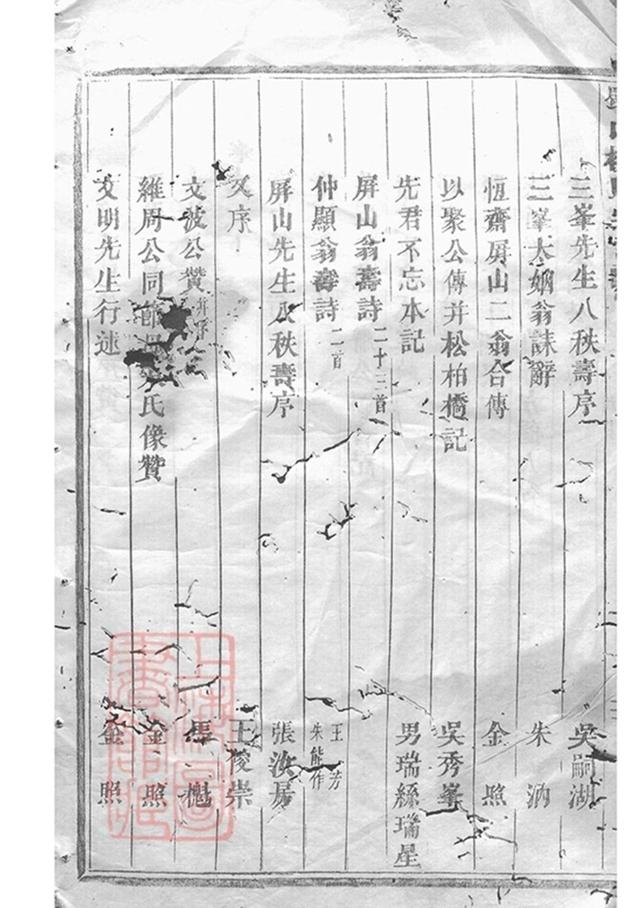 三峯先生八秩壽序 吳嗣湖
三峯大姻翁誄辭 朱汭
恆齋屏山二翁合傳 金照
以聚公傳并松柏橋記 吳秀峯
先君不忘本記 男瑞絲瑞星
屏山翁壽詩二十三首
仲顯翁壽詩二首 王芳 朱能作
屏山先生八秩壽序 張汝房
又序 王俊崇
文波公贊并序 馬
維周公同 氏像贊 金照
文明先生行述 金照